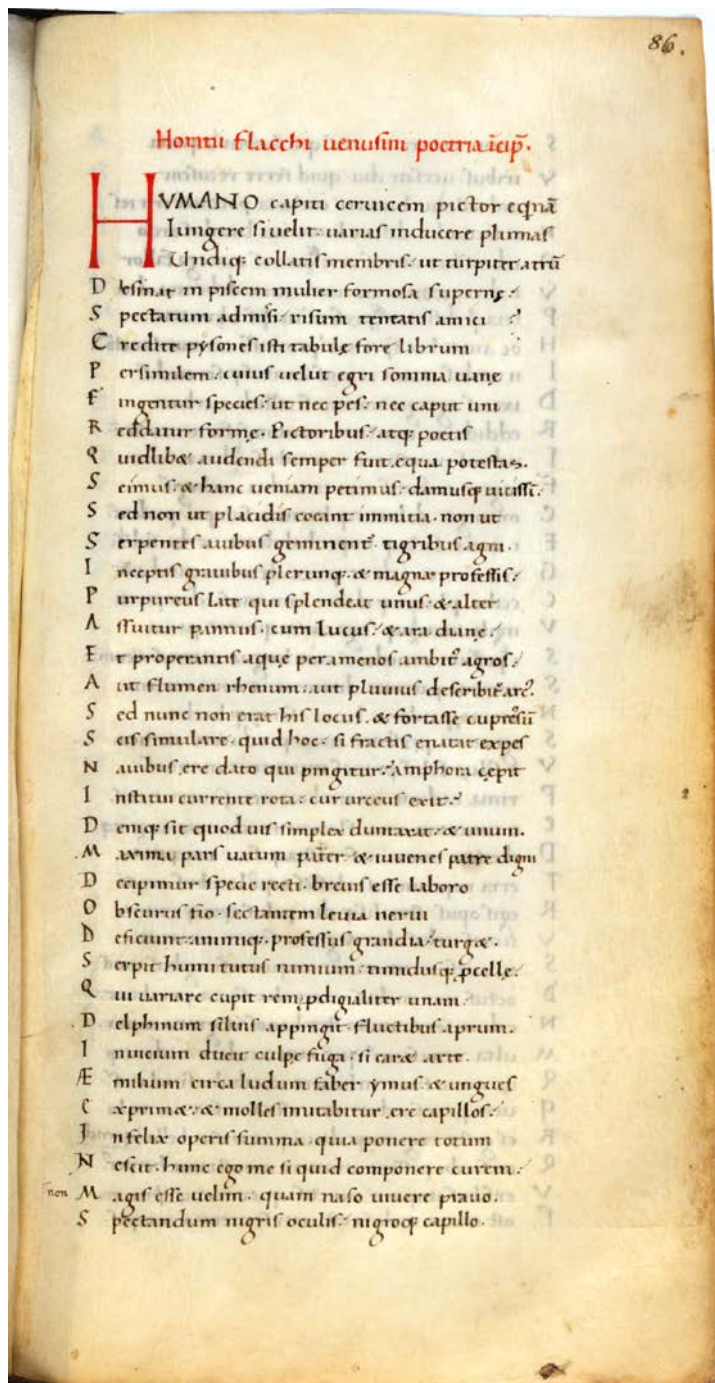 86.
Horatii flacchi uenusini poetria ĩcip̃.
HVMANO capiti ceruicem pictor eqnã
Iungere si uelit. uarias inducere plumas
Vndiq; collatis membris. ut turpiter atrũ
Desinat in piscem mulier formosa supernę.
Spectatum admisi. risum teneatis amici
Credite pysones isti tabulę fore librum
Persimilem. cuius uelut egri somnia uanę
Fingentur species. ut nec pes. nec caput uni
Reddatur formę. Pictoribus. atq; poetis
Quidlibet audendi semper fuit ęqua potestas.
Scimus. & hanc ueniam petimus. damusq; uicissĩ.
Sed non ut placidis coeant immitia. non ut
Serpentes auibus geminent᷑. tigribus agni.
Inceptis grauibus plerunq;. & magna professis.
Purpureus late qui splendeat unus. & alter
Assuitur pannus. cum lucus. & ara dianę.
Et properantis aquę per amenos ambit᷑ agros.
Aut flumen rhenum. aut pluuius describit᷑ arc᷑.
Sed nunc non erat his locus. & fortasse cupressũ
Scis simulare. quid hoc. si fractis enatat expes
Nauibus ęre dato qui pingitur. amphora cępit
Institui currente rota. cur urceus exit.
Deniq; sit quod uis simplex duntaxat. & unum.
Maxima pars uatum pater & iuuenes patre digni
Decipimur specie recti. breuis esse laboro
Obscurus fio. sectantem leuia nerui
Deficiunt animiq;. professus grandia. turget.
Serpit humi tutus nimium. timidusq; p̃cellę.
Qui uariare cupit rem pdigialiter unam.
Delphinum siluis appingit. fluctibus aprum.
In uicium ducit culpę fuga. si caret arte.
Æmilium circa ludum faber ymus. & ungues
Exprimet. & molles imitabitur ęre capillos.
Infelix operis summa. quia ponere totum
Nesciet. hunc ego me si quid componere curem.
non Magis esse uelim. quam naso uiuere prauo.
Spectandum nigris oculis. nigroq; capillo.